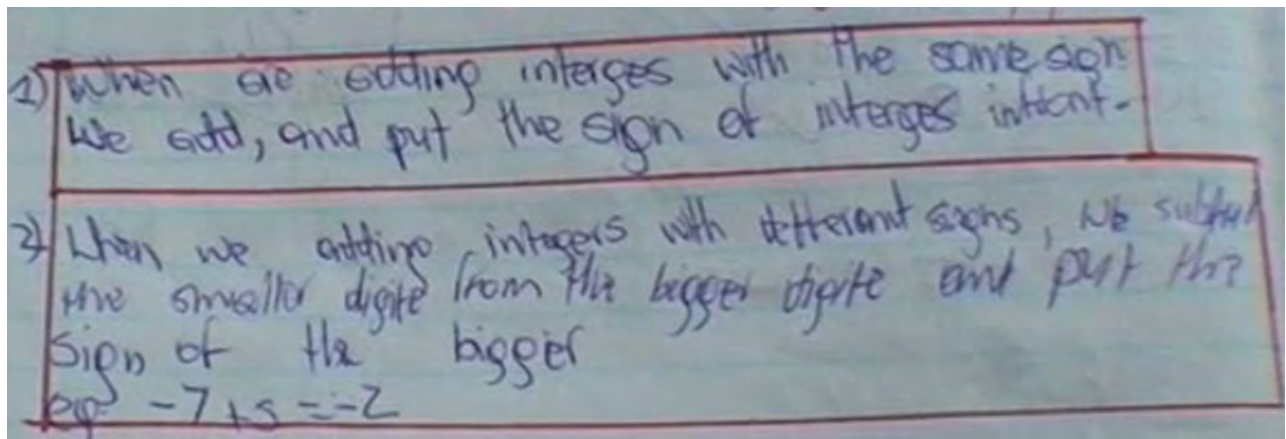 1) When are adding interges with the same sign
We add, and put the sign of interges infront.
2) When we adding integers with defferant signs, we subtract
the smaller digite from the bigger digite and put the
sign of the bigger
eg: -7+5=-2